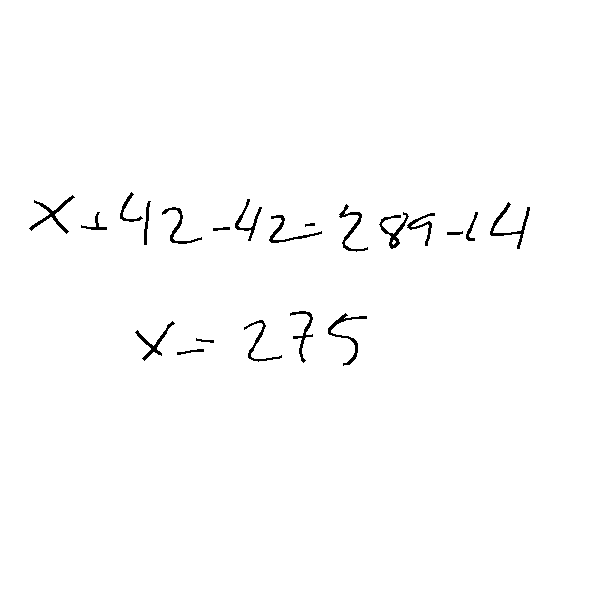 x+42-42=289-14
x=275